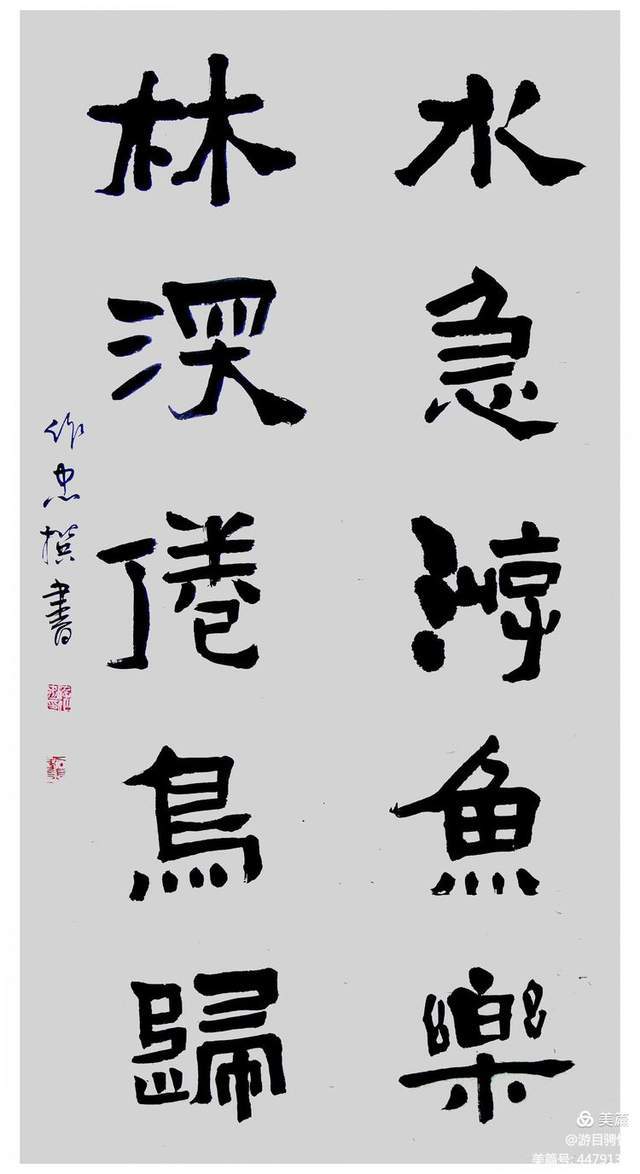 水急游魚樂
林深倦鳥歸
作忠撰書
美篇
@游目骋
美篇号: 447913